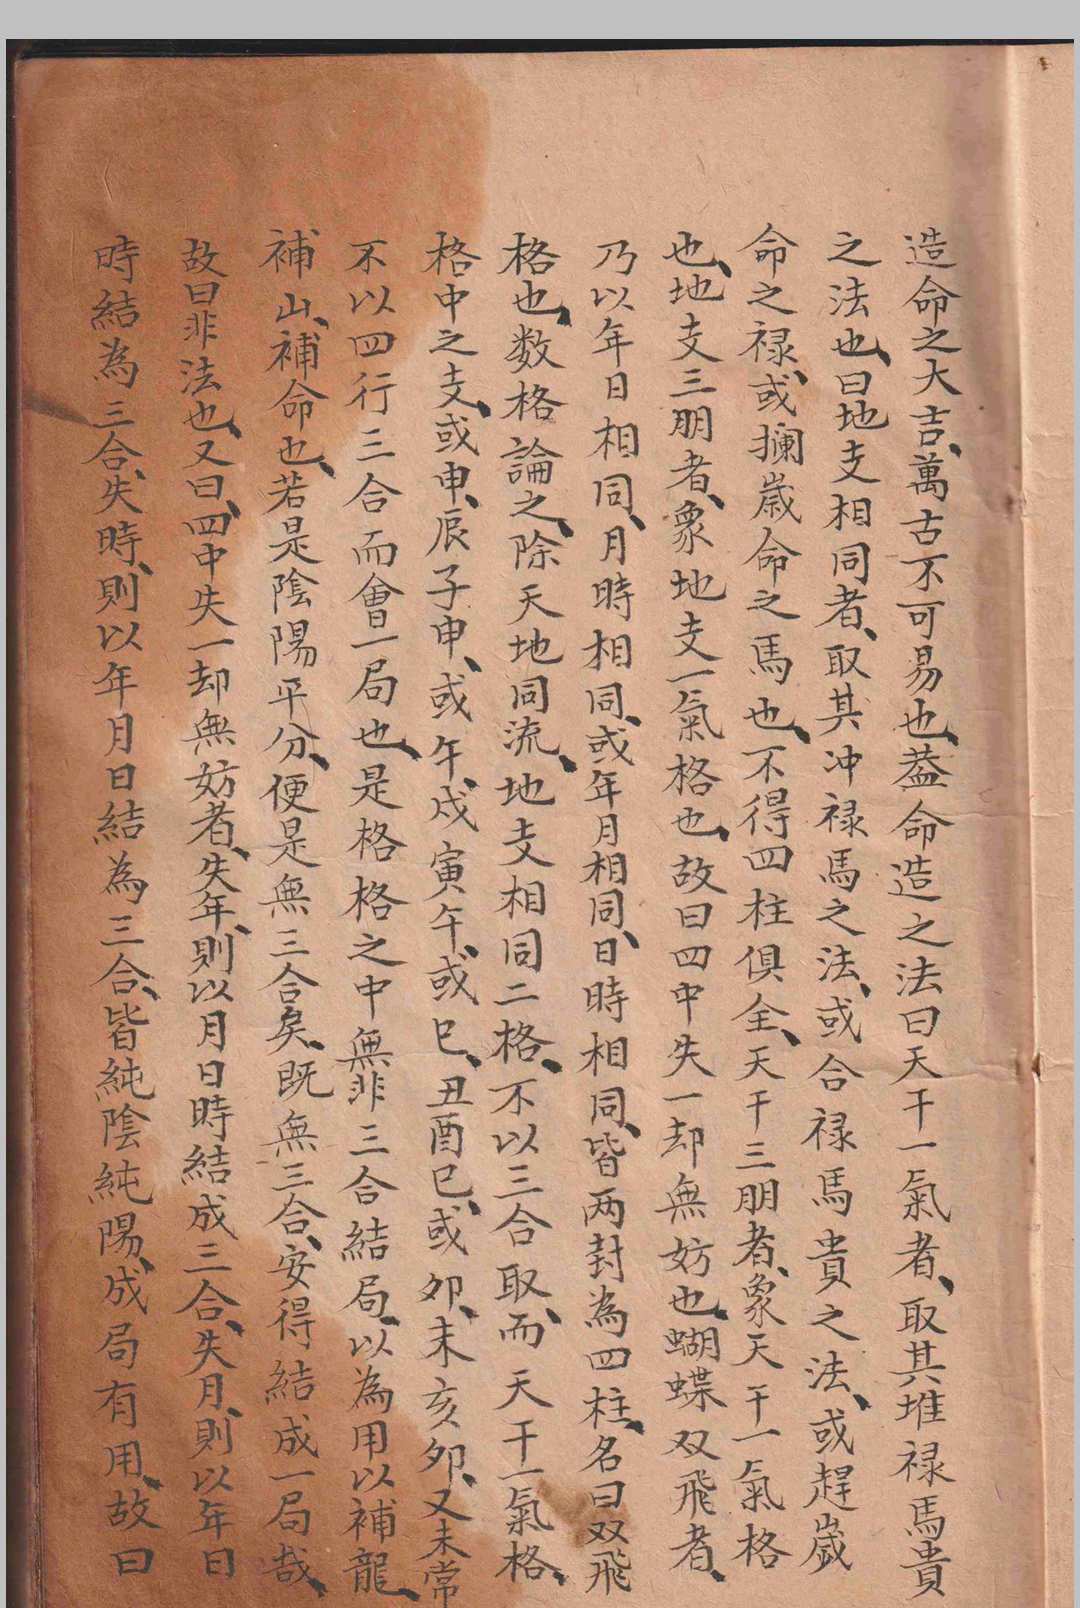 造命之大吉、萬古不可易也、葢命造之法曰天干一氣者、取其堆禄馬貴
之法也、曰地支相同者、取其冲禄馬之法、或合禄馬貴之法、或趕歲
命之禄、或攔歲命之馬也、不得四柱俱全、天干三朋者、象天干一氣格
也、地支三朋者、象地支一氣格也、故曰四中失一却無妨也、蝴蝶双飛者、
乃以年日相同、月時相同、或年月相同、日時相同、皆两封為四柱、名曰双飛
格也、数格論之、除天地同流、地支相同二格、不以三合取、而天干一氣格、
格中之支、或申、辰子申、或午、戍寅午、或巳、丑酉巳、或卯、未亥卯、又未常
不以四行三合而會一局也、是格格之中無非三合結局、以為用以補龍、
補山、補命也、若是陰陽平分、便是無三合矣、既無三合、安得結成一局哉、
故曰非法也、又曰、四中失一却無妨者、失年、則以月日時結成三合、失月、則以年日
時結為三合、失時、則以年月日結為三合、皆純陰純陽、成局有用、故曰